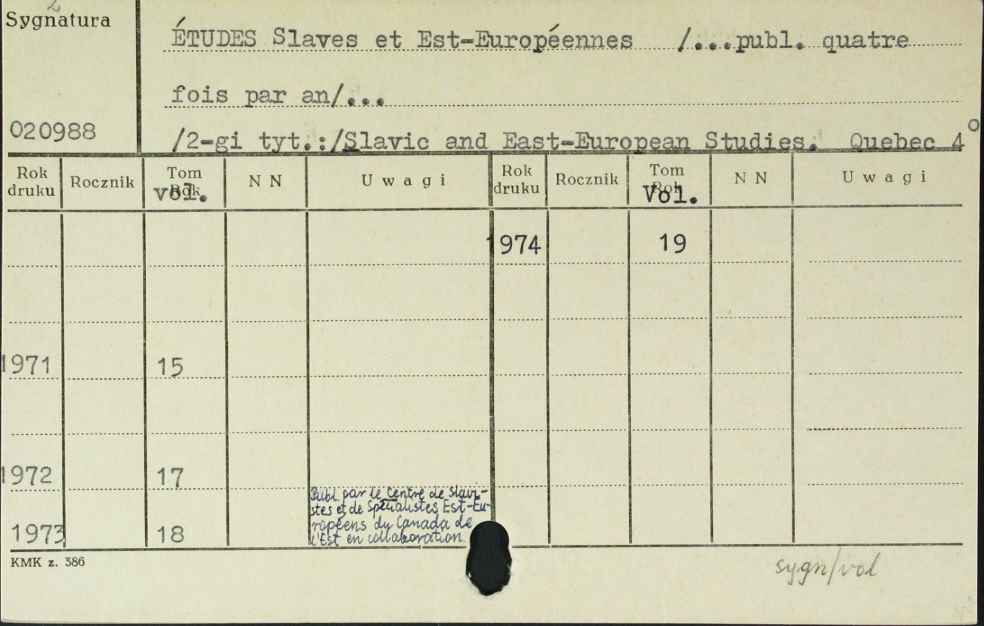 2
Sygnatura
ÉTUDES Slaves et Est-Européennes /...publ. quatre
fois par an/...
020988
/2-gi tyt.:/Slavic and East-European Studies. Quebec 4°
Rok druku Rocznik Tom Rok vol. NN Uwagi Rok druku Rocznik Tom Rok Vol. NN Uwagi
1974 19
1971 15
1972 17
Publ par le Centre de Slavi-
stes et de Spécialistes Est-Eu-
ropéens du Canada de
l'Est en collaboration.
1973 18
KMK z. 386
sygn/vol